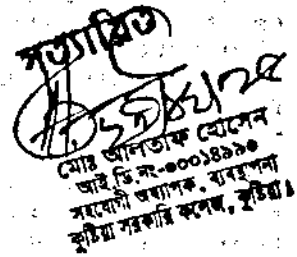 সত্যায়িত
মোঃ আলতাফ হোসেন
আই ডি.নং-০০০১৪৯৯০
সহযোগী অধ্যাপক, ব্যবস্থাপনা
কুষ্টিয়া সরকারি কলেজ, কুষ্টিয়া।